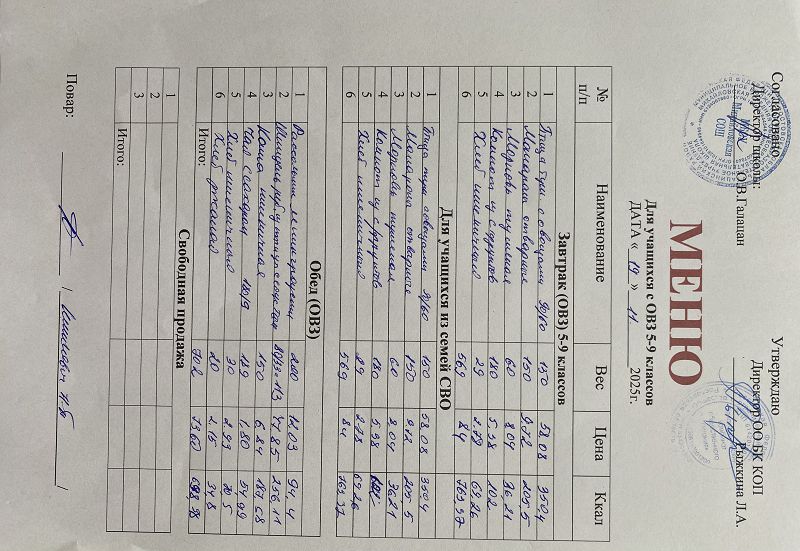 Согласовано
Директор школы:
О.В.Галацан
Утверждаю
Директор ОО БК КОП
Рыжкина Л.А.
МЕНЮ
Для учащихся с ОВЗ 5-9 классов
ДАТА « 19 » 11. 2025г.
№ п/п Наименование Вес Цена Ккал
Завтрак (ОВЗ) 5-9 классов
1 Птица туш с овощами 90/60 150 58.08 350.4
2 Макароны отварные 150 9.72 205,5
3 Морковь тушеная 60 8.04 36.21
4 Компот из с/фруктов 180 5.38 102
5 Хлеб пшеничный 29 2.78 69,26
6 569 84 763.37
Для учащихся из семей СВО
1 Птица туш с овощами 90/60 150 58.08 350.4
2 Макароны отварные 150 9.72 205.5
3 Морковь тушеная 60 8.04 36.21
4 Компот из с/фруктов 180 5.38
5 Хлеб пшеничный 29 2.78 69.26
6 569 84 763.37
Обед (ОВЗ)
1 200 12.03 94.4
2 47.85 256.11
3 Каша пшеничная 150 6.84
4 Чай с сахаром 180/9 189 1.80 54,99
5 Хлеб пшеничный 30 2.93
6 Хлеб ржаной 20 2.15 34,8
Итого: 702 73.60
Свободная продажа
1
2
3
Итого:
Повар: / /